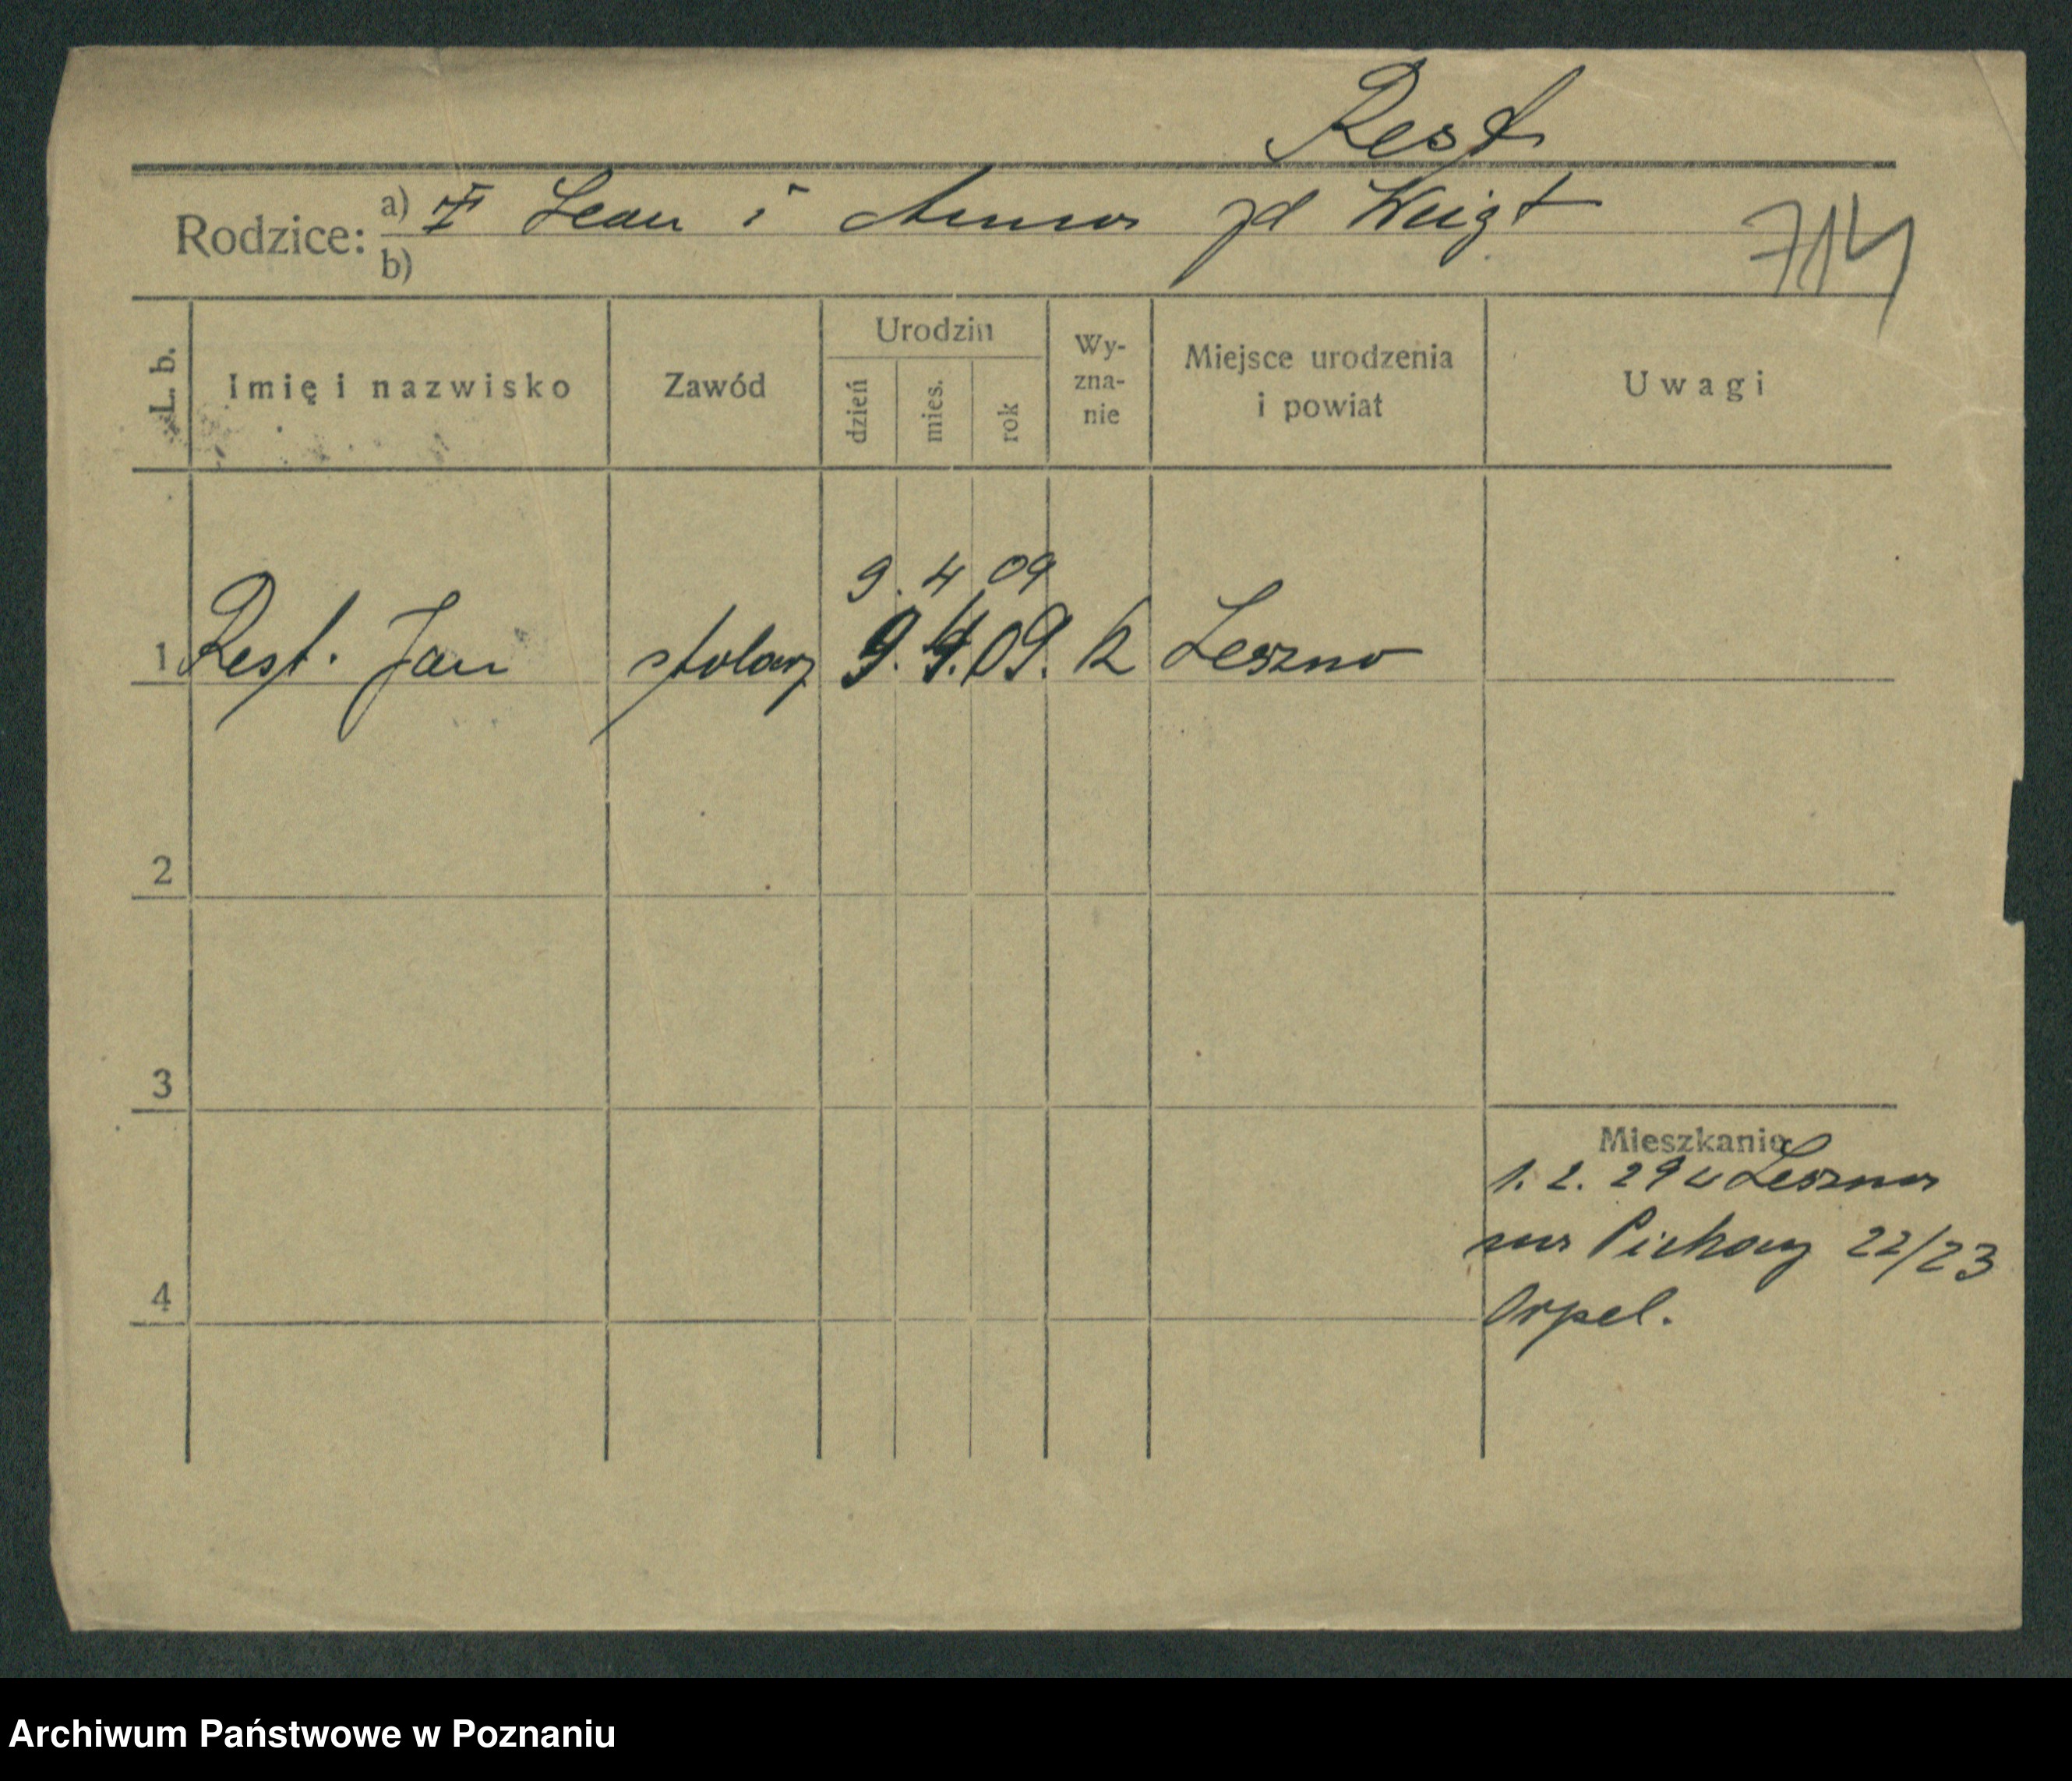 Rest
Rodzice: a) Leau i Anna zd Weigt
b)
714
L. b. Imię i nazwisko Zawód Urodzin dzień mies. rok Wy-zna-nie Miejsce urodzenia i powiat Uwagi
9. 4 09
1 Rest. Jan stolarz 9. 4. 09. k Leszno
2
3
Mieszkanie
1. 2. 29 Leszno
22/23
4
Orpel.
Archiwum Państwowe w Poznaniu